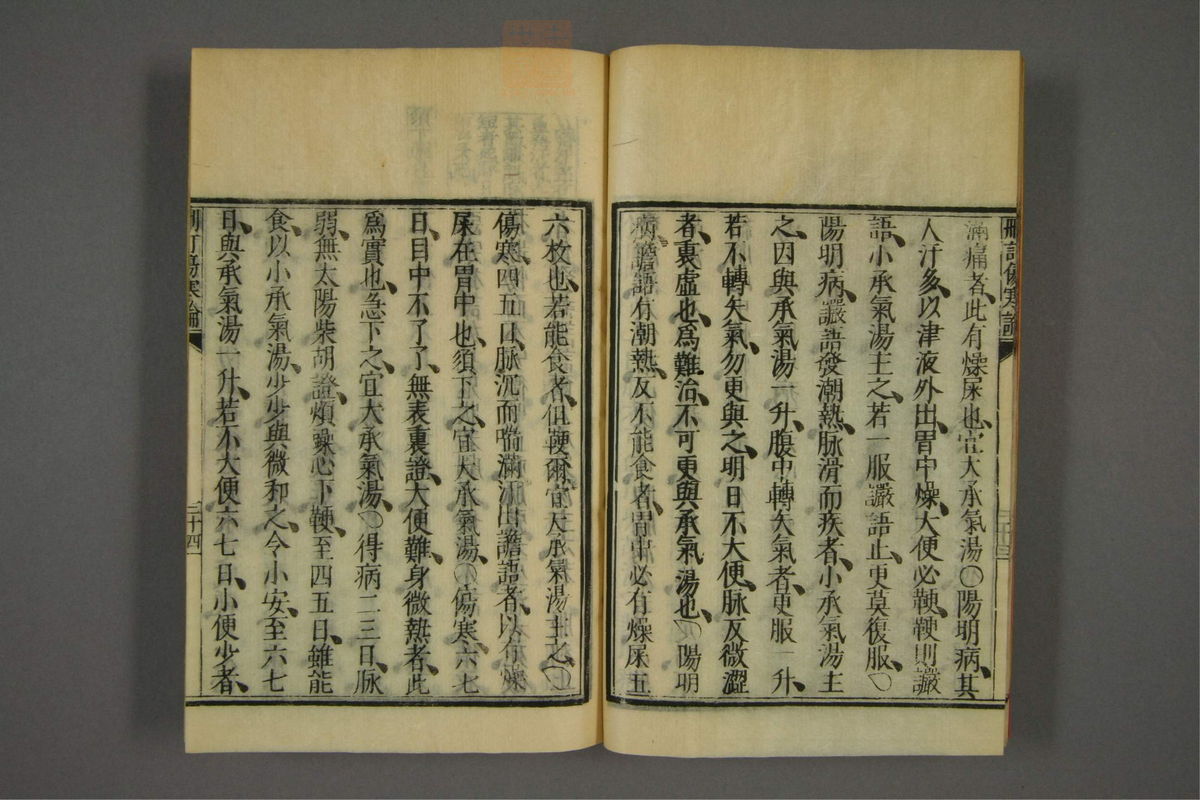 刪訂傷寒論
滿痛者、此有燥屎也、宜大承氣湯○陽明病、其
人汗多、以津液外出、胃中燥、大便必鞕、鞕則讝
語、小承氣湯主之、若一服讝語止、更莫復服、○
陽明病、讝語發潮熱、脉滑而疾者、小承氣湯主
之、因與承氣湯一升、腹中轉矢氣者、更服一升、
若不轉矢氣、勿更與之、明日不大便、脉反微澀
者、裏虛也、爲難治、不可更與承氣湯也、○陽明
病、譫語有潮熱、反不能食者、胃中必有燥屎五
六枚也、若能食者、但鞕爾、宜大承氣湯主之、○
傷寒四五日、脉沉而喘滿、譫語者、以有燥
屎在胃中也、須下之、宜大承氣湯、○傷寒六七
日、目中不了了、無表裏證、大便難、身微熱者、此
爲實也、急下之、宜大承氣湯、○得病二三日、脉
弱、無太陽柴胡證、煩躁、心下鞕、至四五日、雖能
食、以小承氣湯、少少與微和之、令小安、至六七
日、與承氣湯一升、若不大便六七日、小便少者、
刪訂傷寒論
二十四